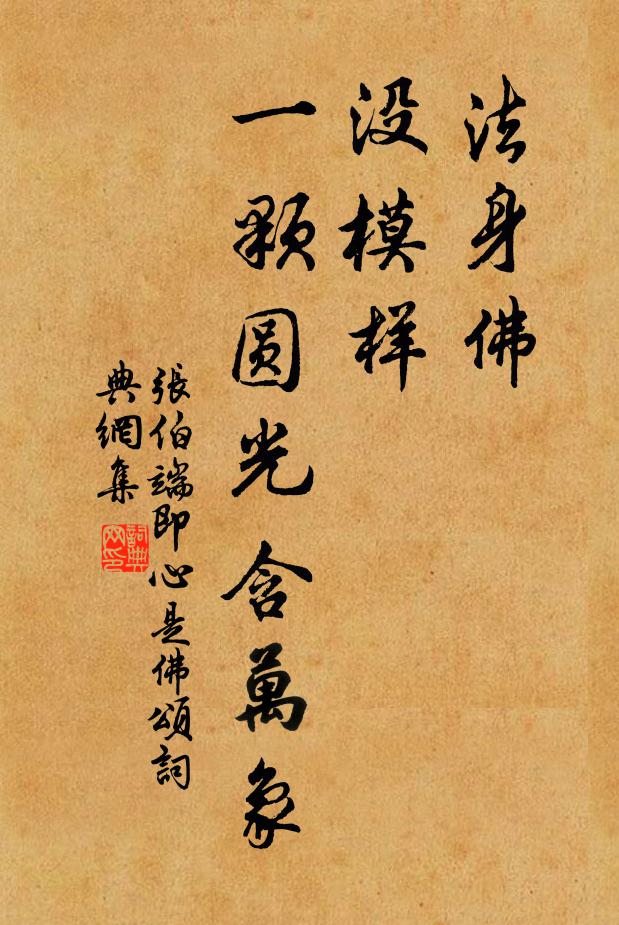 法身佛
没模样
一颗圆光含萬象
張伯端即心是佛頌詞
典網集
詞典
网印